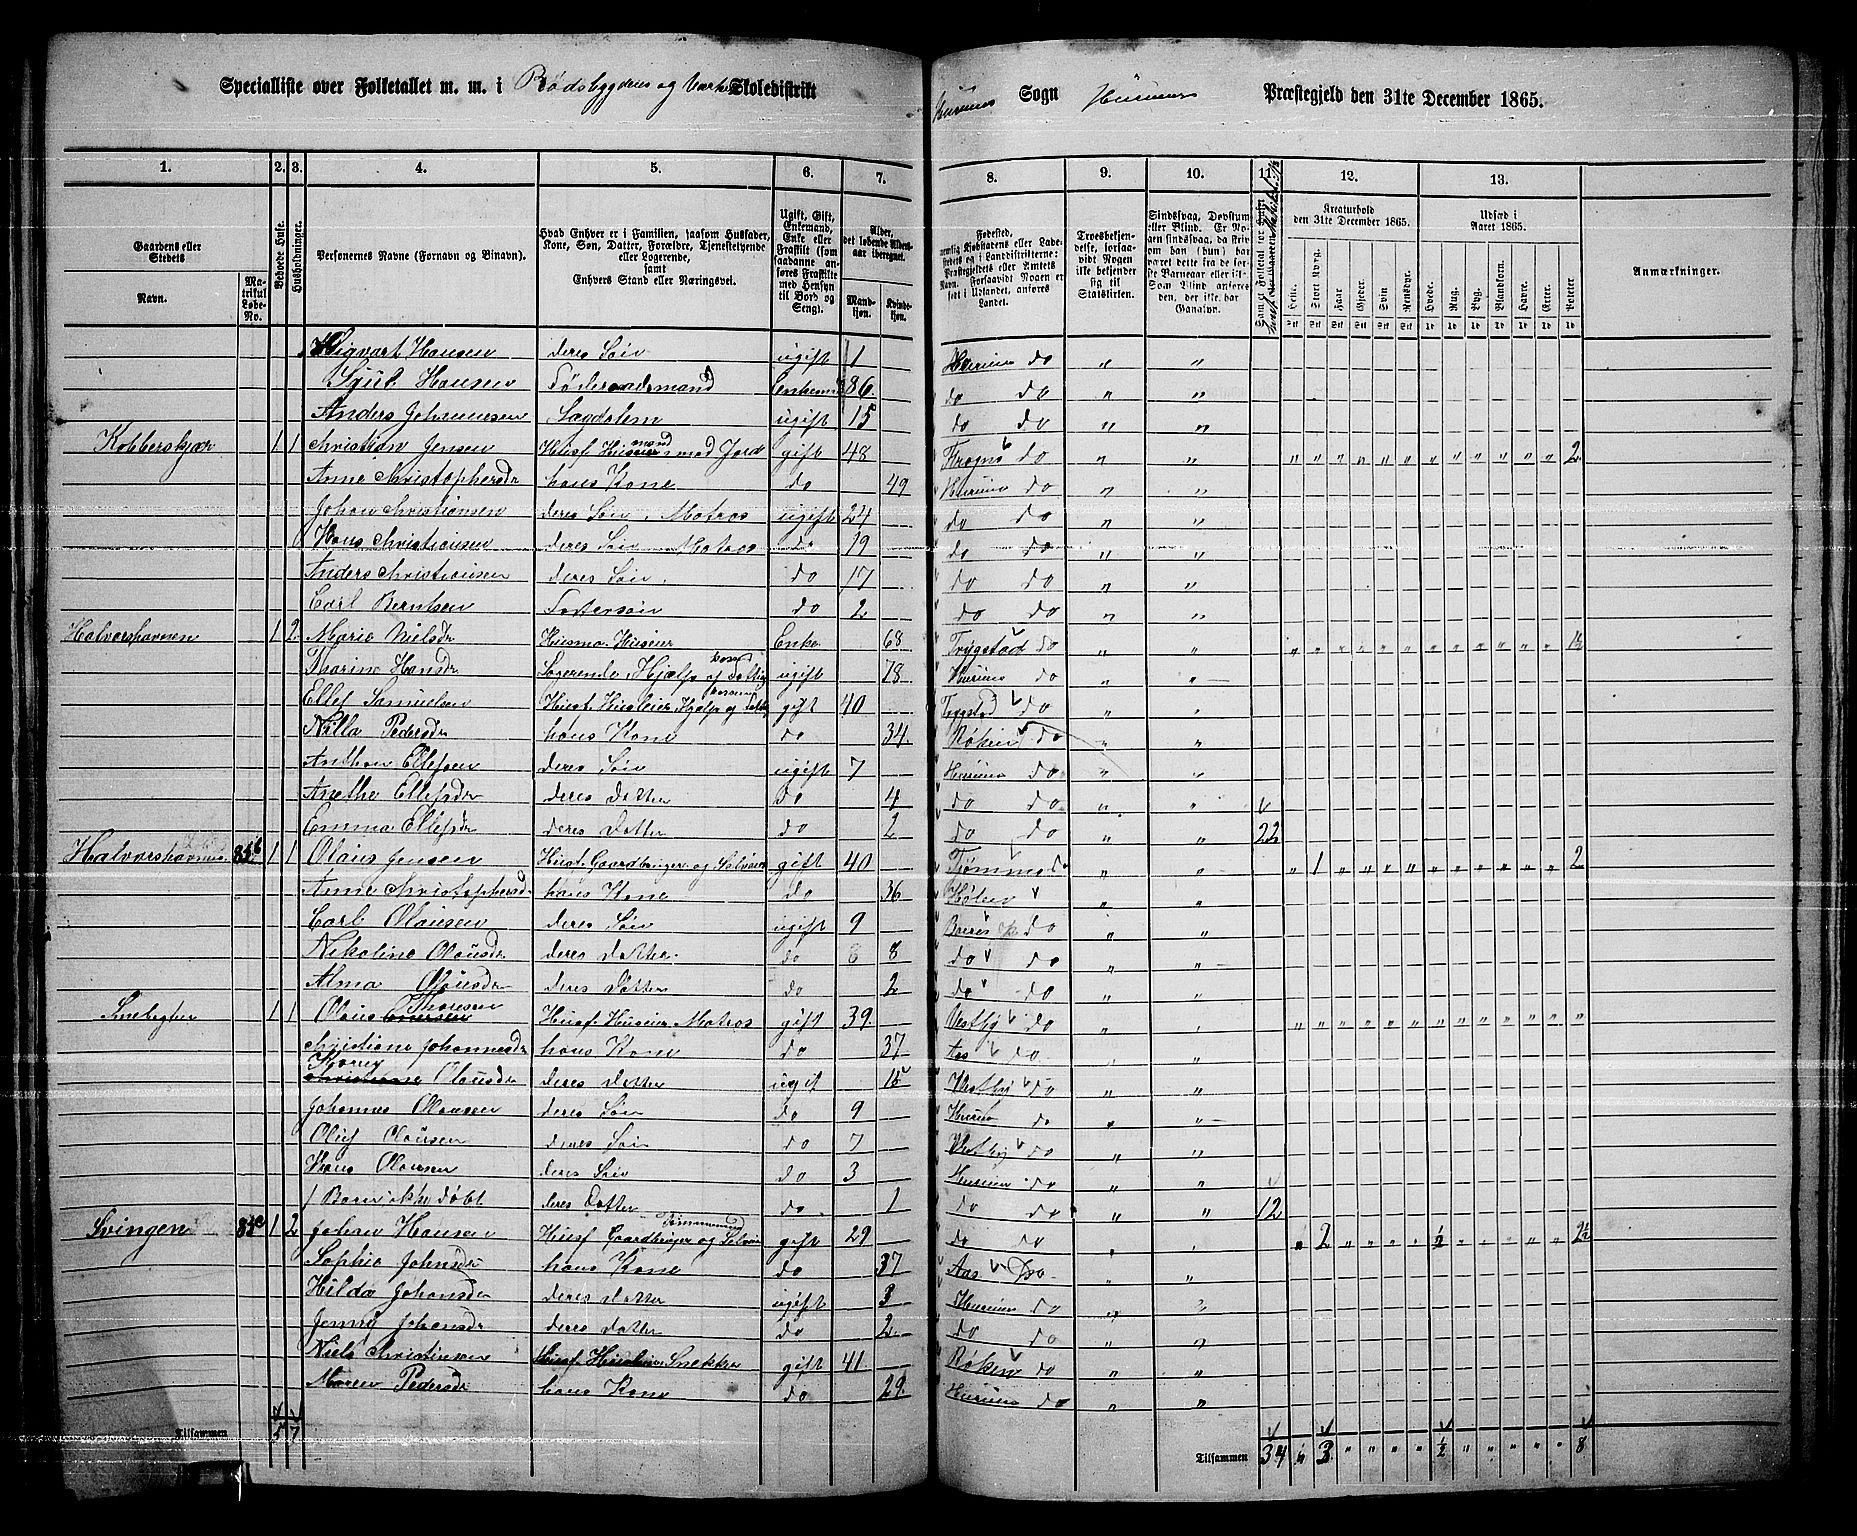 Specialliste over Folketallet m. m. i Rødsbygdens og Værkets Skoledistrikt
Hurums Sogn Hurums Præstegjeld den 31te December 1865.
1. 2. 3. 4. 5. 6. 7. 8. 9. 10. 11. 12. 13.
Gaardens eller Stedets Navn. Matrikul Løbe-No. Beboede Huse. Husholdninger. Personernes Navne (Fornavn og Binavn).
Hvad Enhver er i Familien, saasom Husfader, Kone, Søn, Datter, Forældre, Tjenestetyende eller Logerende, samt Enhvers Stand eller Næringsvei.
Ugift, Gift, Enkemand, Enke eller Fraskilt
Alder, det løbende Aldersaar iberegnet. Mandkjøn. Kvindekjøn.
Fødested,
Troesbekjendelse, forsaavidt Nogen ikke bekjender sig til Statskirken.
Sindssvag, Døvstum eller Blind.
Kreaturhold den 31te December 1865. Heste. Stort Kvæg. Faar. Gjeder. Svin. Rensdyr.
Udsæd i Aaret 1865. Hvede. Rug. Byg. Blandkorn. Havre. Erter. Poteter.
Anmærkninger.
Sigvart Hansen deres Søn ugift 1 Hurum do " "
Sjul Hansen Føderaadsmand Enkem 86 do do " "
Anders Johannesen Lægdslem ugift 15 do do " "
Kobberskjær 1 1 Christian Jensen Husf. Husmand med Jord gift 48 Frogn do " " " " " " " " " " " " " " 2
Anne Christophersdr hans Kone do 49 Hurum do " "
Johan Christiansen deres Søn, Matros ugift 24 do do " "
Hans Christiansen deres Søn Matros do 19 do do " "
Anders Christiansen deres Søn do 17 do do " "
Carl Berntsen Fostersøn do 2 do do " "
Halvorshavnen 1 2 Marie Nielsdr Husmo Huseier Enke 68 Trygstad do " " " " " " " " " " " " " " 1½
Tharine Hansdr Logerende ugift 78 Hurum do " "
Ellef Samuelsen Husf. Huseier gift 40 Trygstad do " "
Nilla Pedersdr hans Kone do 34 Røken do " "
Anthon Ellefsen deres Søn ugift 7 Hurum do " "
Anethe Ellefsdr deres Datter do 4 do do " "
Emma Ellefsdr deres Datter do 2 do do " " 22
Halvorshavnen 85b 1 1 Olaus Jensen Husf. Gaardbruger og Selveier gift 40 Tjømme do " " " 1 " " " " " " " " " " 2
Anne Christophersdr hans Kone do 36 Hølen " "
Carl Olausen deres Søn ugift 9 do " "
Nikoline Olausdr deres Datter do 8 do do " "
Alma Olausdr deres Datter do 2 do do " "
1 1 Olaus Thoresen Husf. Huseier Matros gift 39 Vestby do " " " " " " " " " " " " " " "
Christiane Johannesdr hans Kone do 37 Aas do " "
Olausdr deres Datter ugift 15 Vestby do " "
Johannes Olausen deres Søn do 9 Hurum do " "
Oluf Olausen deres Søn do 7 Vestby do " "
Hans Olausen deres Søn do 3 Hurum do " "
1 Barn ikke døbt deres Datter do 1 do do " " 12
Svingen 85c 1 2 Johan Hansen Husf Gaardbruger og Selveier Tømmermand gift 29 do do " " " 2 " " " " ½ " " " " " 2½
Sophie Johnsdr hans Kone do 37 Aas do " "
Hilda Johansdr deres Datter ugift 3 Hurum do " "
Jenny Johansdr deres Datter do 2 do do " "
Niels Christiansen Husf. Huseier Snekker gift 41 Røken do " "
Maren Pedersdr hans Kone do 29 Hurum do " "
Tilsammen 5 7
Tilsammen 34 " 3 " " " " ½ " " " " " 8